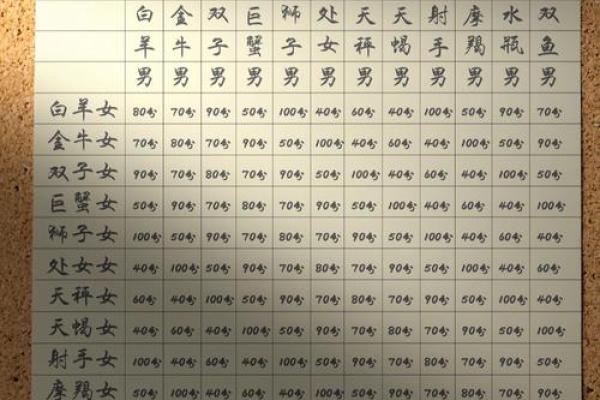 白 金 双 巨 狮 处 天 天 射 摩 水 双
羊 牛 子 蟹 子 女 秤 蝎 手 羯 瓶 鱼
男 男 男 男 男 男 男 男 男 男 男 男
白羊女 80分 70分 90分 50分 100分 40分 60分 40分 100分 50分 90分 70分
金牛女 70分 80分 70分 90分 50分 100分 40分 60分 40分 100分 50分 90分
双子女 90分 70分 80分 70分 90分 50分 100分 40分 60分 40分 100分 50分
巨蟹女 50分 90分 70分 80分 70分 90分 50分 100分 40分 60分 40分 100分
狮子女 100分 50分 90分 70分 80分 70分 90分 50分 100分 40分 60分 40分
处女女 40分 100分 50分 90分 70分 80分 70分 90分 50分 100分 40分 60分
天秤女 60分 40分 100分 50分 90分 70分 80分 70分 90分 50分 100分 40分
天蝎女 40分 60分 40分 100分 50分 90分 70分 80分 70分 90分 50分 100分
射手女 100分 40分 60分 40分 100分 50分 90分 70分 80分 70分 90分 50分
摩羯女 50分 100分 40分 60分 40分 100分 50分 90分 70分 80分 70分 90分